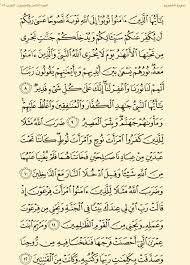 الجزء الثامن والعشرون سورة التحريم
يَٰٓأَيُّهَا ٱلَّذِينَ ءَامَنُوا۟ تُوبُوٓا۟ إِلَى ٱللَّهِ تَوْبَةً نَّصُوحًا عَسَىٰ رَبُّكُمْ
أَن يُكَفِّرَ عَنكُمْ سَيِّـَٔاتِكُمْ وَيُدْخِلَكُمْ جَنَّٰتٍ تَجْرِى
مِن تَحْتِهَا ٱلْأَنْهَٰرُ يَوْمَ لَا يُخْزِى ٱللَّهُ ٱلنَّبِىَّ وَٱلَّذِينَ ءَامَنُوا۟
مَعَهُۥ نُورُهُمْ يَسْعَىٰ بَيْنَ أَيْدِيهِمْ وَبِأَيْمَٰنِهِمْ يَقُولُونَ رَبَّنَآ
أَتْمِمْ لَنَا نُورَنَا وَٱغْفِرْ لَنَآ إِنَّكَ عَلَىٰ كُلِّ شَىْءٍ قَدِيرٌ ٨
يَٰٓأَيُّهَا ٱلنَّبِىُّ جَٰهِدِ ٱلْكُفَّارَ وَٱلْمُنَٰفِقِينَ وَٱغْلُظْ عَلَيْهِمْ
وَمَأْوَىٰهُمْ جَهَنَّمُ وَبِئْسَ ٱلْمَصِيرُ ٩ ضَرَبَ ٱللَّهُ مَثَلًا
لِّلَّذِينَ كَفَرُوا۟ ٱمْرَأَتَ نُوحٍ وَٱمْرَأَتَ لُوطٍ كَانَتَا تَحْتَ
عَبْدَيْنِ مِنْ عِبَادِنَا صَٰلِحَيْنِ فَخَانَتَاهُمَا فَلَمْ يُغْنِيَا عَنْهُمَا
مِنَ ٱللَّهِ شَيْـًٔا وَقِيلَ ٱدْخُلَا ٱلنَّارَ مَعَ ٱلدَّٰخِلِينَ ١٠
وَضَرَبَ ٱللَّهُ مَثَلًا لِّلَّذِينَ ءَامَنُوا۟ ٱمْرَأَتَ فِرْعَوْنَ إِذْ
قَالَتْ رَبِّ ٱبْنِ لِى عِندَكَ بَيْتًا فِى ٱلْجَنَّةِ وَنَجِّنِى مِن فِرْعَوْنَ
وَعَمَلِهِۦ وَنَجِّنِى مِنَ ٱلْقَوْمِ ٱلظَّٰلِمِينَ ١١ وَمَرْيَمَ ٱبْنَتَ
عِمْرَٰنَ ٱلَّتِىٓ أَحْصَنَتْ فَرْجَهَا فَنَفَخْنَا فِيهِ مِن رُّوحِنَا
وَصَدَّقَتْ بِكَلِمَٰتِ رَبِّهَا وَكُتُبِهِۦ وَكَانَتْ مِنَ ٱلْقَٰنِتِينَ ١٢